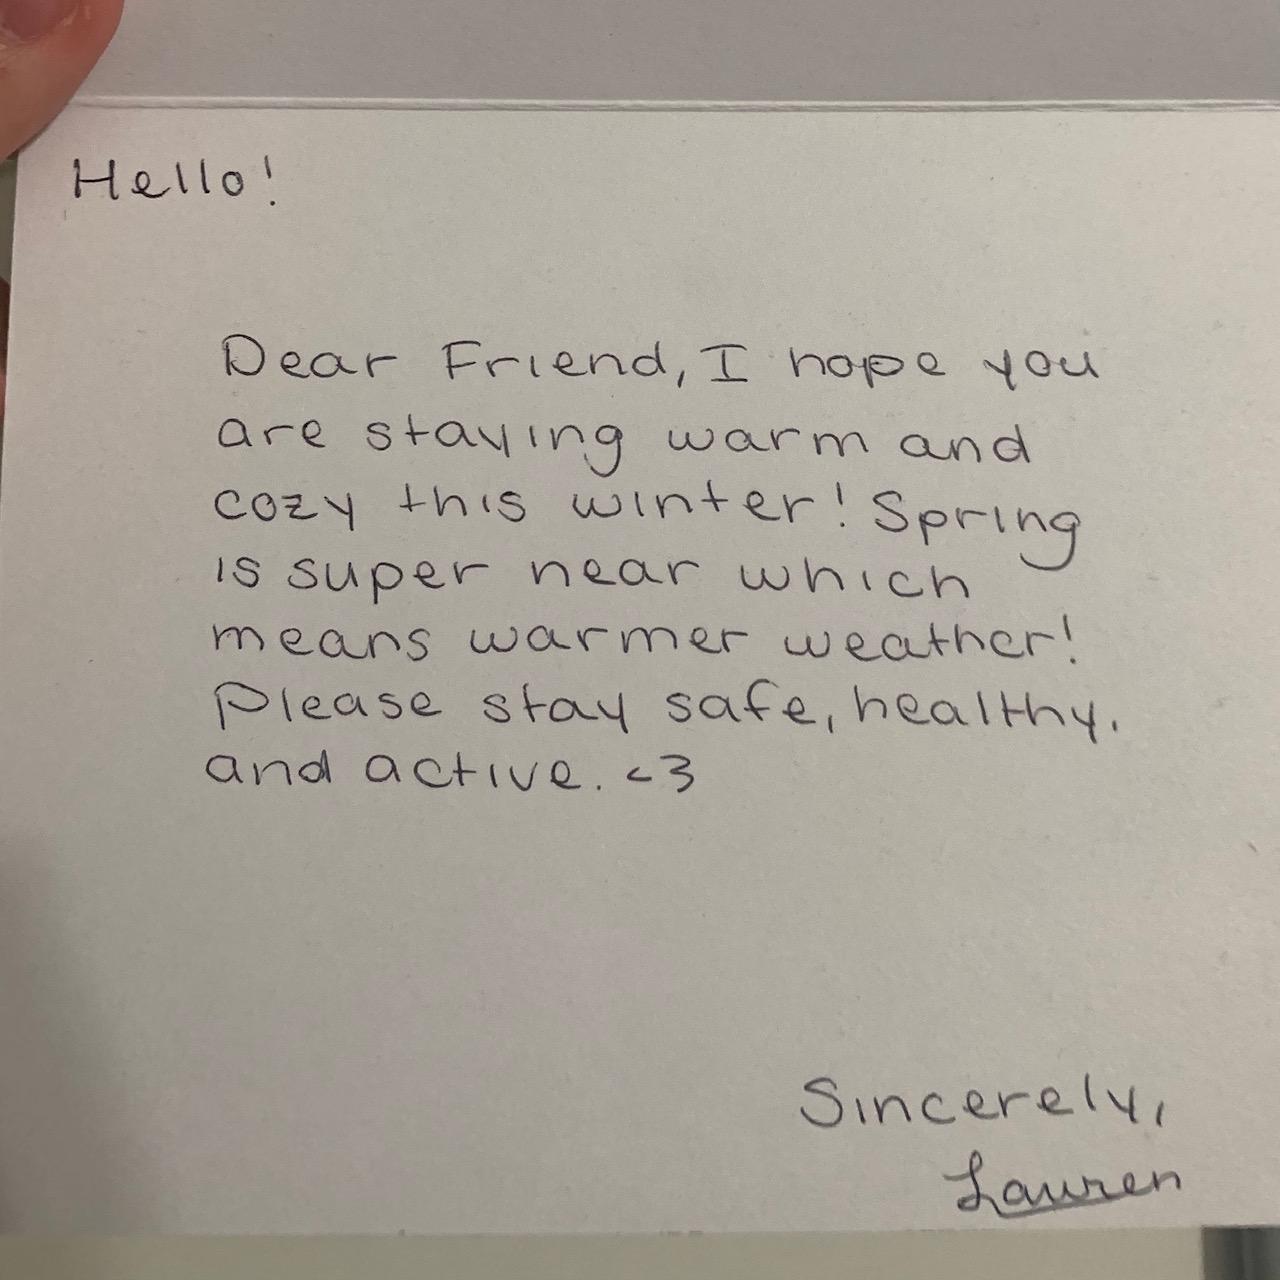 Hello!
Dear Friend, I hope you
are staying warm and
cozy this winter! Spring
is super near which
means warmer weather!
Please stay safe, healthy,
and active. <3
Sincerely,
Lauren